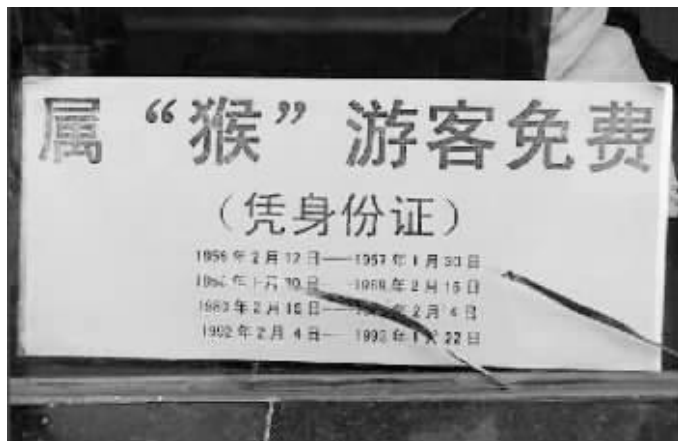 属“猴”游客免费
（凭身份证）
1956年2月12日——1957年1月30日
月30日——1968年2月16日
1980年2月16日——年2月4日
1992年2月4日——1993年1月22日